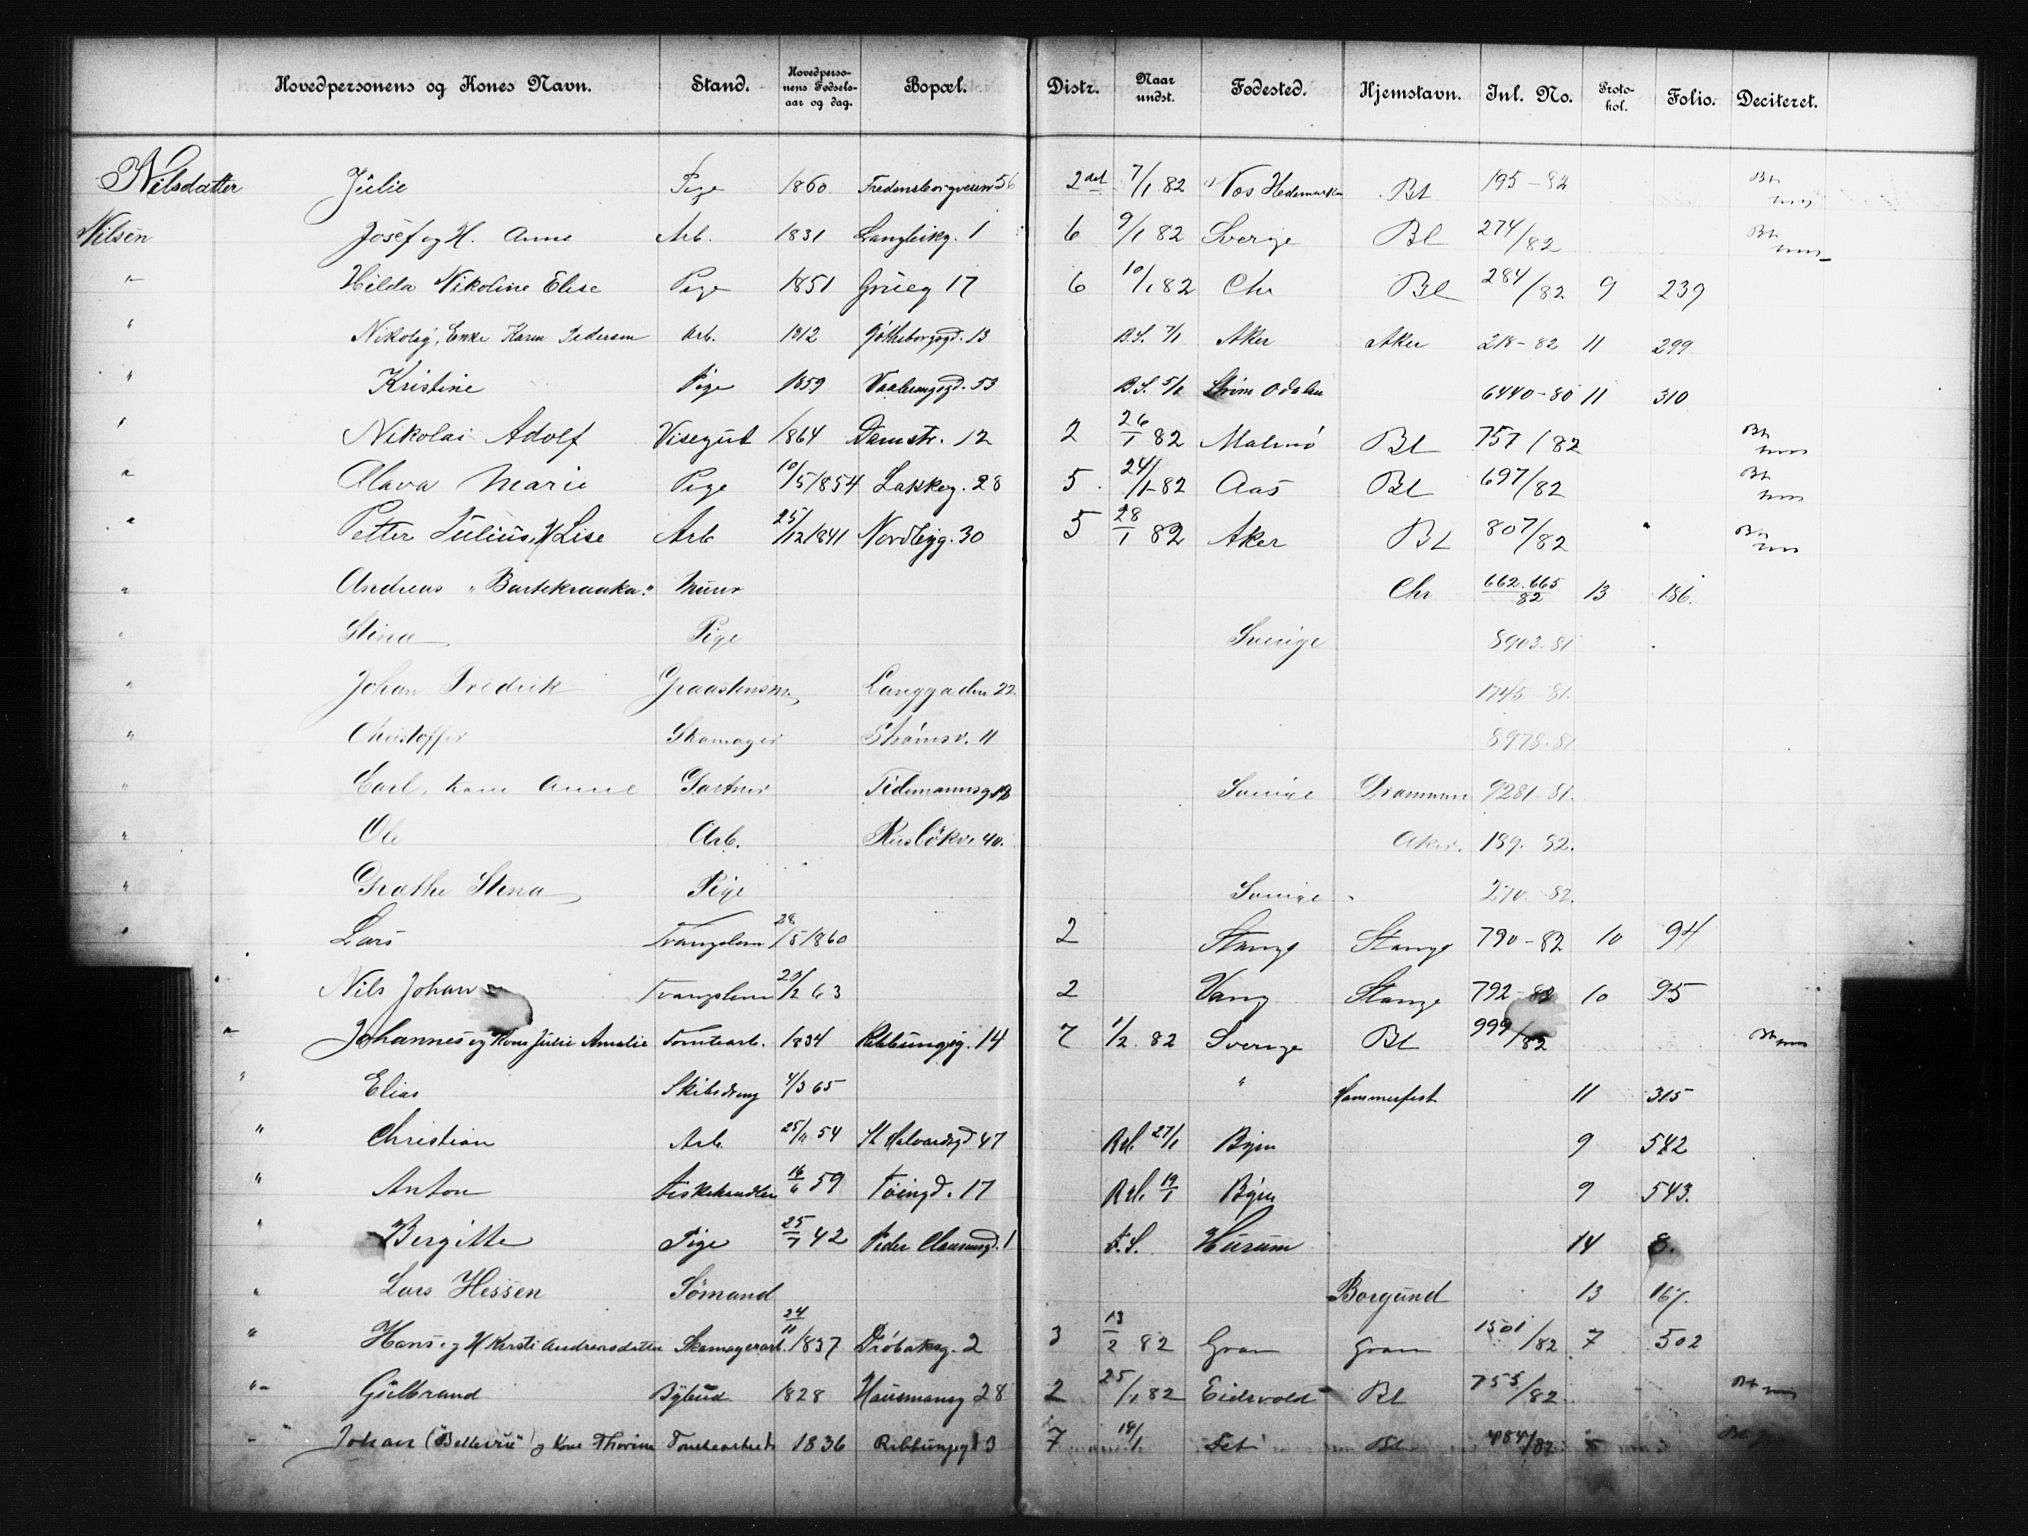 Hovedpersonens og Kones Navn. Stand. Hovedpersonens Fødselsaar og dag. Bopæl. Distr. Naar undst. Fødested. Hjemstavn. Inl. No. Protokol. Folio. Deciteret.
Nilsdatter Julie Pige 1860 Fredensborgveien 56 2det 7/1 82 Hedemarken Bl 195-82
Nilsen Josef og H. Anne Arb. 1831 Langleikg. 1 6 9/1 82 Sverge Bl 274/82
" Hilda Nikoline Elise Pige 1851 Grüeg 17 6 10/1 82 Chr Bl 284/82 9 239
" Nikolaj, Enke Karen Pedersen Arb. 1812 Gøtheborggd. 13 B.S. 7/1 Aker Aker 218-82 11 299
" Kristine Pige 1859 Vaalerengsgd. 53 B.S. 5/1 Odalen 6440-80 11 310
" Nikolai Adolf Visegut 1864 Damstr. 12 2 26/1 82 Malmø Bl 757/82
" Olava Marie Pige 10/5 1854 Lakkeg. 28 5 24/1-82 Aas Bl 697/82
" Petter Julius, H Lise Arb 25/12 1841 Nordbyg. 30 5 28/1 82 Aker Bl 807/82
" Andreas "Bartekraaka" Murer Chr 662.665/82 13 186.
" Stina Pige Sverige 8903-81
" Johan Fredrik Graastensm. Langgaden 22 1745-81.
" Christoffer Skomager Strømsv. 11 8978-81
" Carl, Kone Anne Gartner Tidemannsg 12 Sverige Drammen 9281-81.
" Ole Arb. Rusløkv. 40. Aker. 189-82.
" Grethe Stena Pige Sverige 270-82.
" Lars Tvangslem 28/5 1860 2 Stange Stange 790-82 10 94
Nils Johan Tvangslem 20/2 63 2 Vang Stange 792-82 10 95
" Johannes og Kone Julie Amalie Tomtearb. 1834 Ribbungsg. 14 7 1/2 82 Sverige Bl 999/82
" Elias Skibsdreng 4/3 65 " Hammerfest 11 315
" Christian Arb. 25/11 54 St Halvardsgd 47 27/1 Byen 9 542
" Anton Fiskehandler 16/6 59 Tøingd. 17 19/1 Byen 9 543.
" Bergitte Pige 25/7 42 Peder Clausensgd. 1 F.S. Hurum 14 8.
" Lars Hessen Sømand Borgund 13 167.
" Hans og H Kirsti Andreasdatter Skomagerarb. 24/11 1837 Drøbaksg. 2 3 13/2 82 Gran Gran 1501/82 7 502
" Gulbrand Bybud 1828 Hausmansg 28 2 25/1 82 Eidsvold Bl 755/82
" Johan ("Bellevue") og Kone Thorine Tomtearbeid 1836 Ribbungsgd 3 7 18/1 Fet Bl 484/82